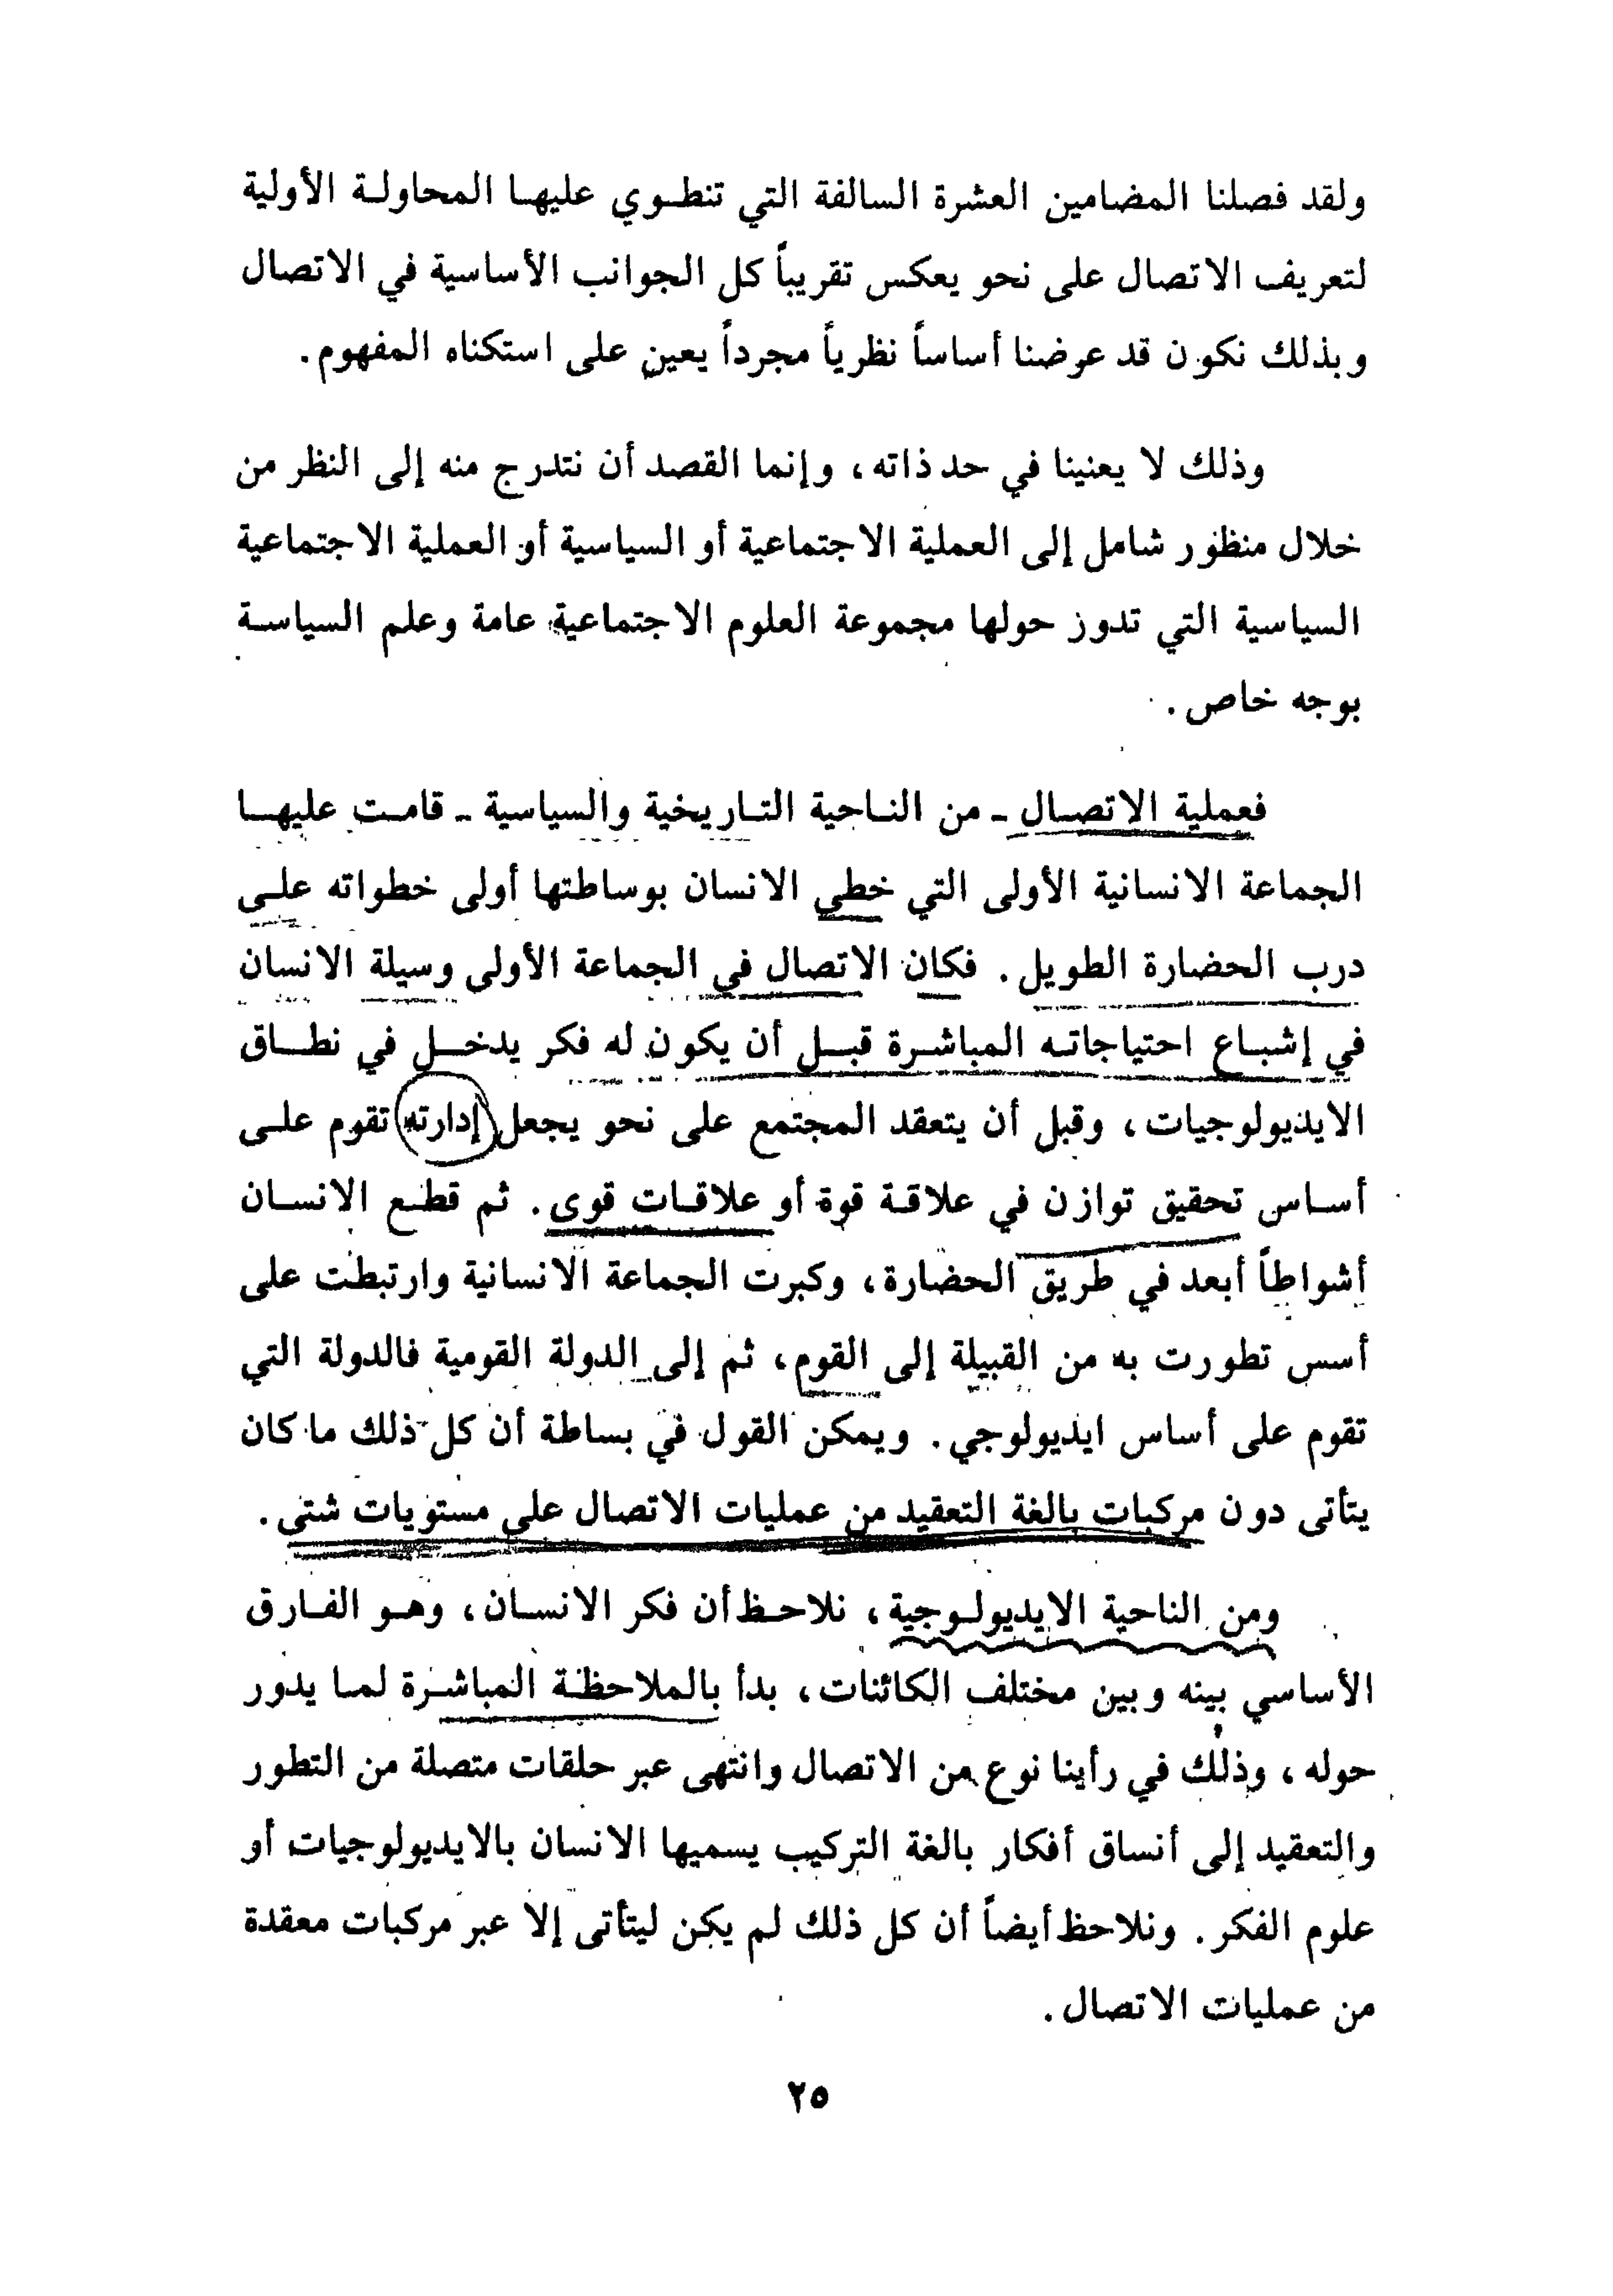 ولقد فصلنا المضامين العشرة السالفة التي تنطوي عليها المحاولة الأولية
لتعريف الاتصال على نحو يعكس تقريباً كل الجوانب الأساسية في الاتصال
وبذلك نكون قد عرضنا أساساً نظرياً مجرداً يعين على استكناه المفهوم.
وذلك لا يعنينا في حد ذاته، وإنما القصد أن نتدرج منه إلى النظر من
خلال منظور شامل إلى العملية الاجتماعية أو السياسية أو العملية الاجتماعية
السياسية التي تدور حولها مجموعة العلوم الاجتماعية عامة وعلم السياسة
بوجه خاص.
فعملية الاتصال - من الناحية التاريخية والسياسية - قامت عليها
الجماعة الانسانية الأولى التي خطي الانسان بوساطتها أولى خطواته على
درب الحضارة الطويل. فكان الاتصال في الجماعة الأولى وسيلة الانسان
في إشباع احتياجاته المباشرة قبل أن يكون له فكر يدخل في نطاق
الايديولوجيات، وقبل أن يتعقد المجتمع على نحو يجعل إدارته تقوم على
أساس تحقيق توازن في علاقة قوة أو علاقات قوى. ثم قطع الانسان
أشواطاً أبعد في طريق الحضارة، وكبرت الجماعة الانسانية وارتبطت على
أسس تطورت به من القبيلة إلى القوم، ثم إلى الدولة القومية فالدولة التي
تقوم على أساس ايديولوجي. ويمكن القول في بساطة أن كل ذلك ما كان
يتأتى دون مركبات بالغة التعقيد من عمليات الاتصال على مستويات شتى.
ومن الناحية الايديولوجية، نلاحظ أن فكر الانسان، وهو الفارق
الأساسي بينه وبين مختلف الكائنات، بدأ بالملاحظة المباشرة لما يدور
حوله، وذلك في رأينا نوع من الاتصال وانتهى عبر حلقات متصلة من التطور
والتعقيد إلى أنساق أفكار بالغة التركيب يسميها الانسان بالايديولوجيات أو
علوم الفكر. ونلاحظ أيضاً أن كل ذلك لم يكن ليتأتى إلا عبر مركبات معقدة
من عمليات الاتصال.
٢٥